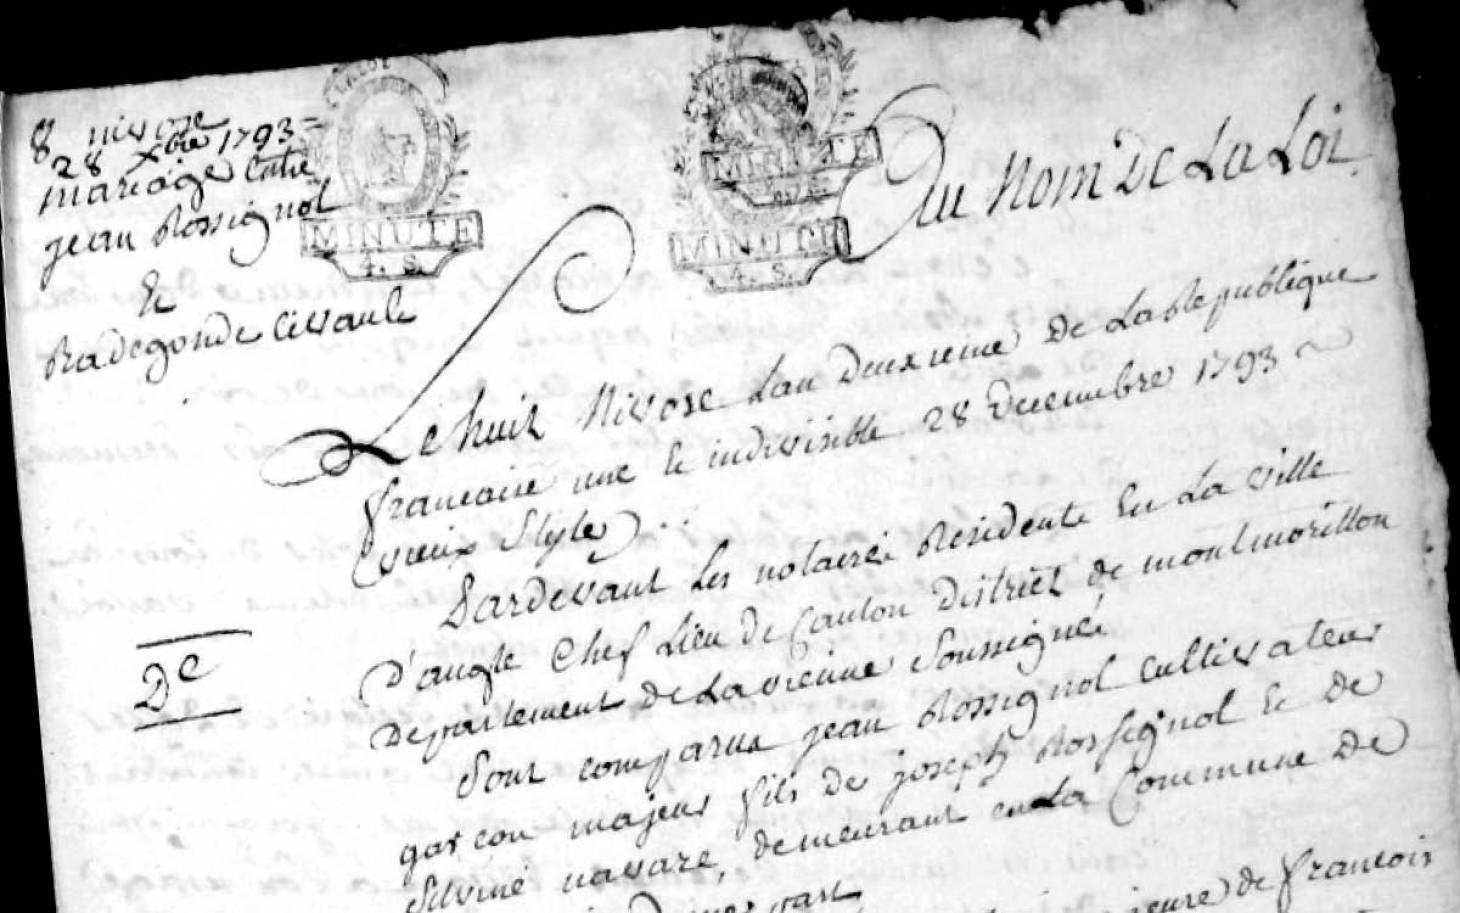 8 nivose
28 xbre 1793 =
mariage Entre
jean Rossignol
Et
Radegonde Civault
MINUTE
4. S.
MINUTE
MINUTE
4. S.
Au Nom De La Loi
Le huit Nivose Lan Deuxieme De La Republique
francaise une Et indivisible 28 Decembre 1793
(vieux Style)
Pardevant Les notaires Residents En La ville
D'angle Chef Lieu de Canton District de montmorillon
Departement de La vienne Soussignés
De
Sont comparus jean Rossignol Cultivateur
garcon majeur fils de joseph Rossignol Et De
Silvine navare, demeurant en La Commune De
part
majeure de francois